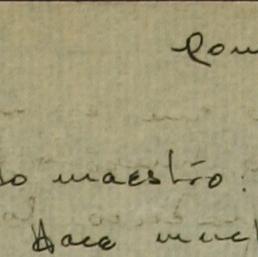 Rom
do maestro:
Hace much